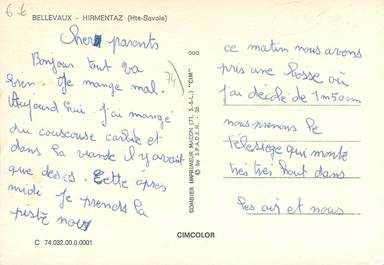 6 6
BELLEVAUX - HIRMENTAZ (Hte-Savoie)
Cher parents
Bonjour tout va
bien. Je mange mal.
Aujourd'hui j'ai mangé
du couscouse et
dans la viande il y avait
que des os. Cette après
midi je prends la
piste nous
C 74.032.00.0.0001
74
COMBIER IMPRIMEUR MACON (71. S.-&-L.) "CIM"
© by S.P.A.D.E.M. - 36
CIMCOLOR
ce matin nous avons
pris une bosse où
j'ai décidé de 1m50cm
nous prenons le
télésiège qui monte
très très haut dans
les air et nous